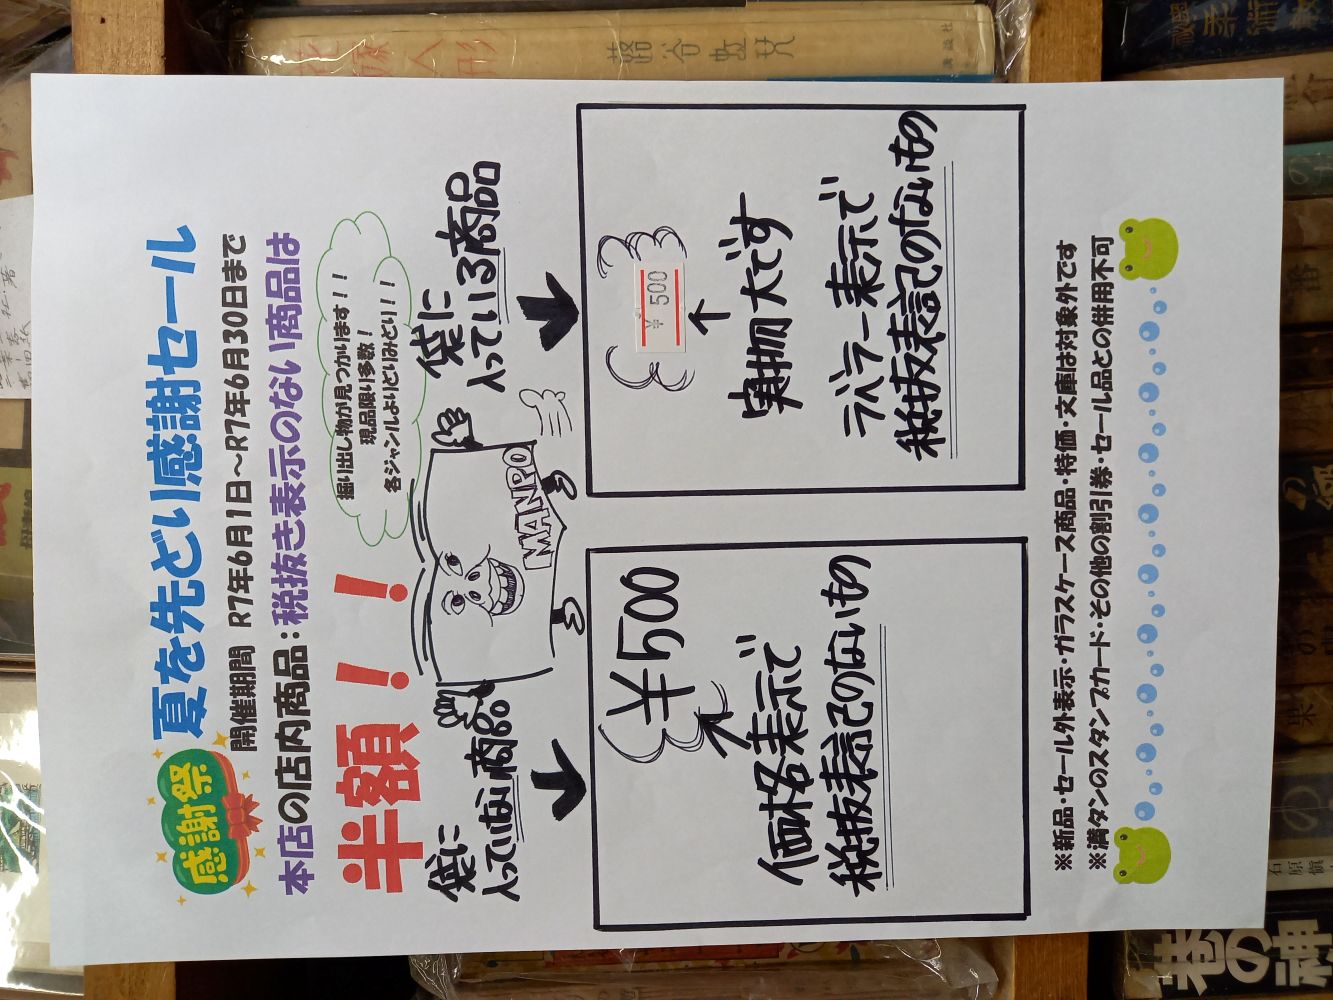 感謝祭
夏を先どり感謝セール
開催期間 R7年6月1日～R7年6月30日まで
本店の店内商品：税抜き表示のない商品は
半額！！
掘り出し物が見つかります！！
現品限り多数！
各ジャンルよりどりみどり！！
袋に
入っていない商品
MANPO
袋に
入っている商品
¥500
価格表示で
税抜表記のないもの
¥500
実物大です
ラベラー表示で
税抜表記のないもの
※新品・セール外表示・ガラスケース商品・特価・文庫は対象外です
※満タンのスタンプカード・その他の割引券・セール品との併用不可
人形
講談社
石原慎
巷の神